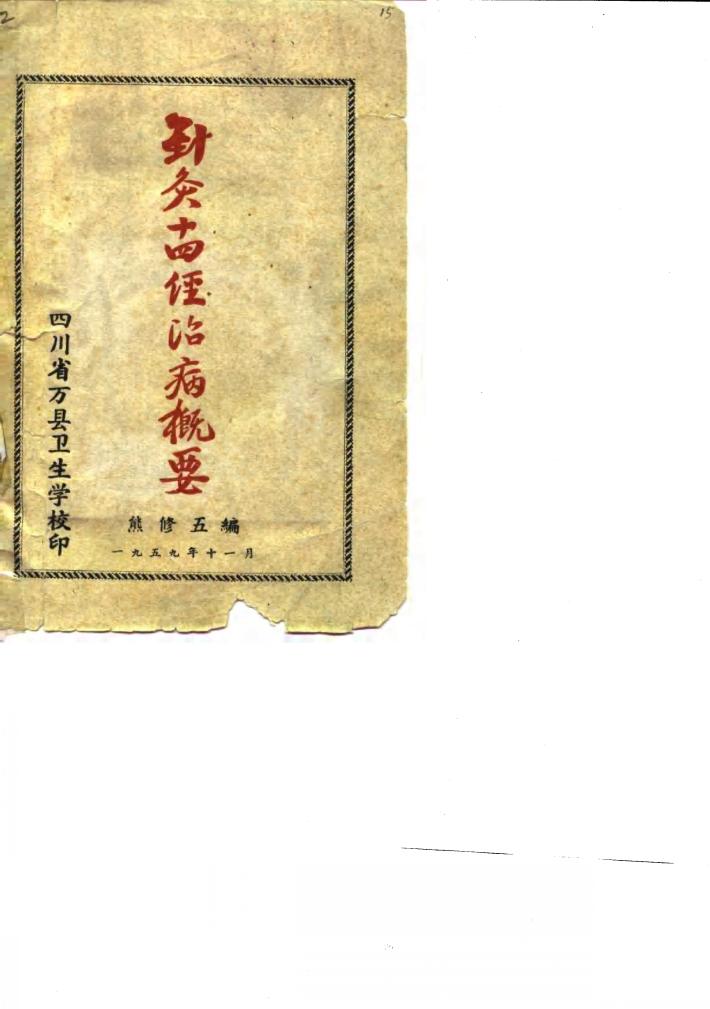 2
15
針灸十四經治病概要
四川省万县卫生学校印
熊修五編
一九五九年十一月